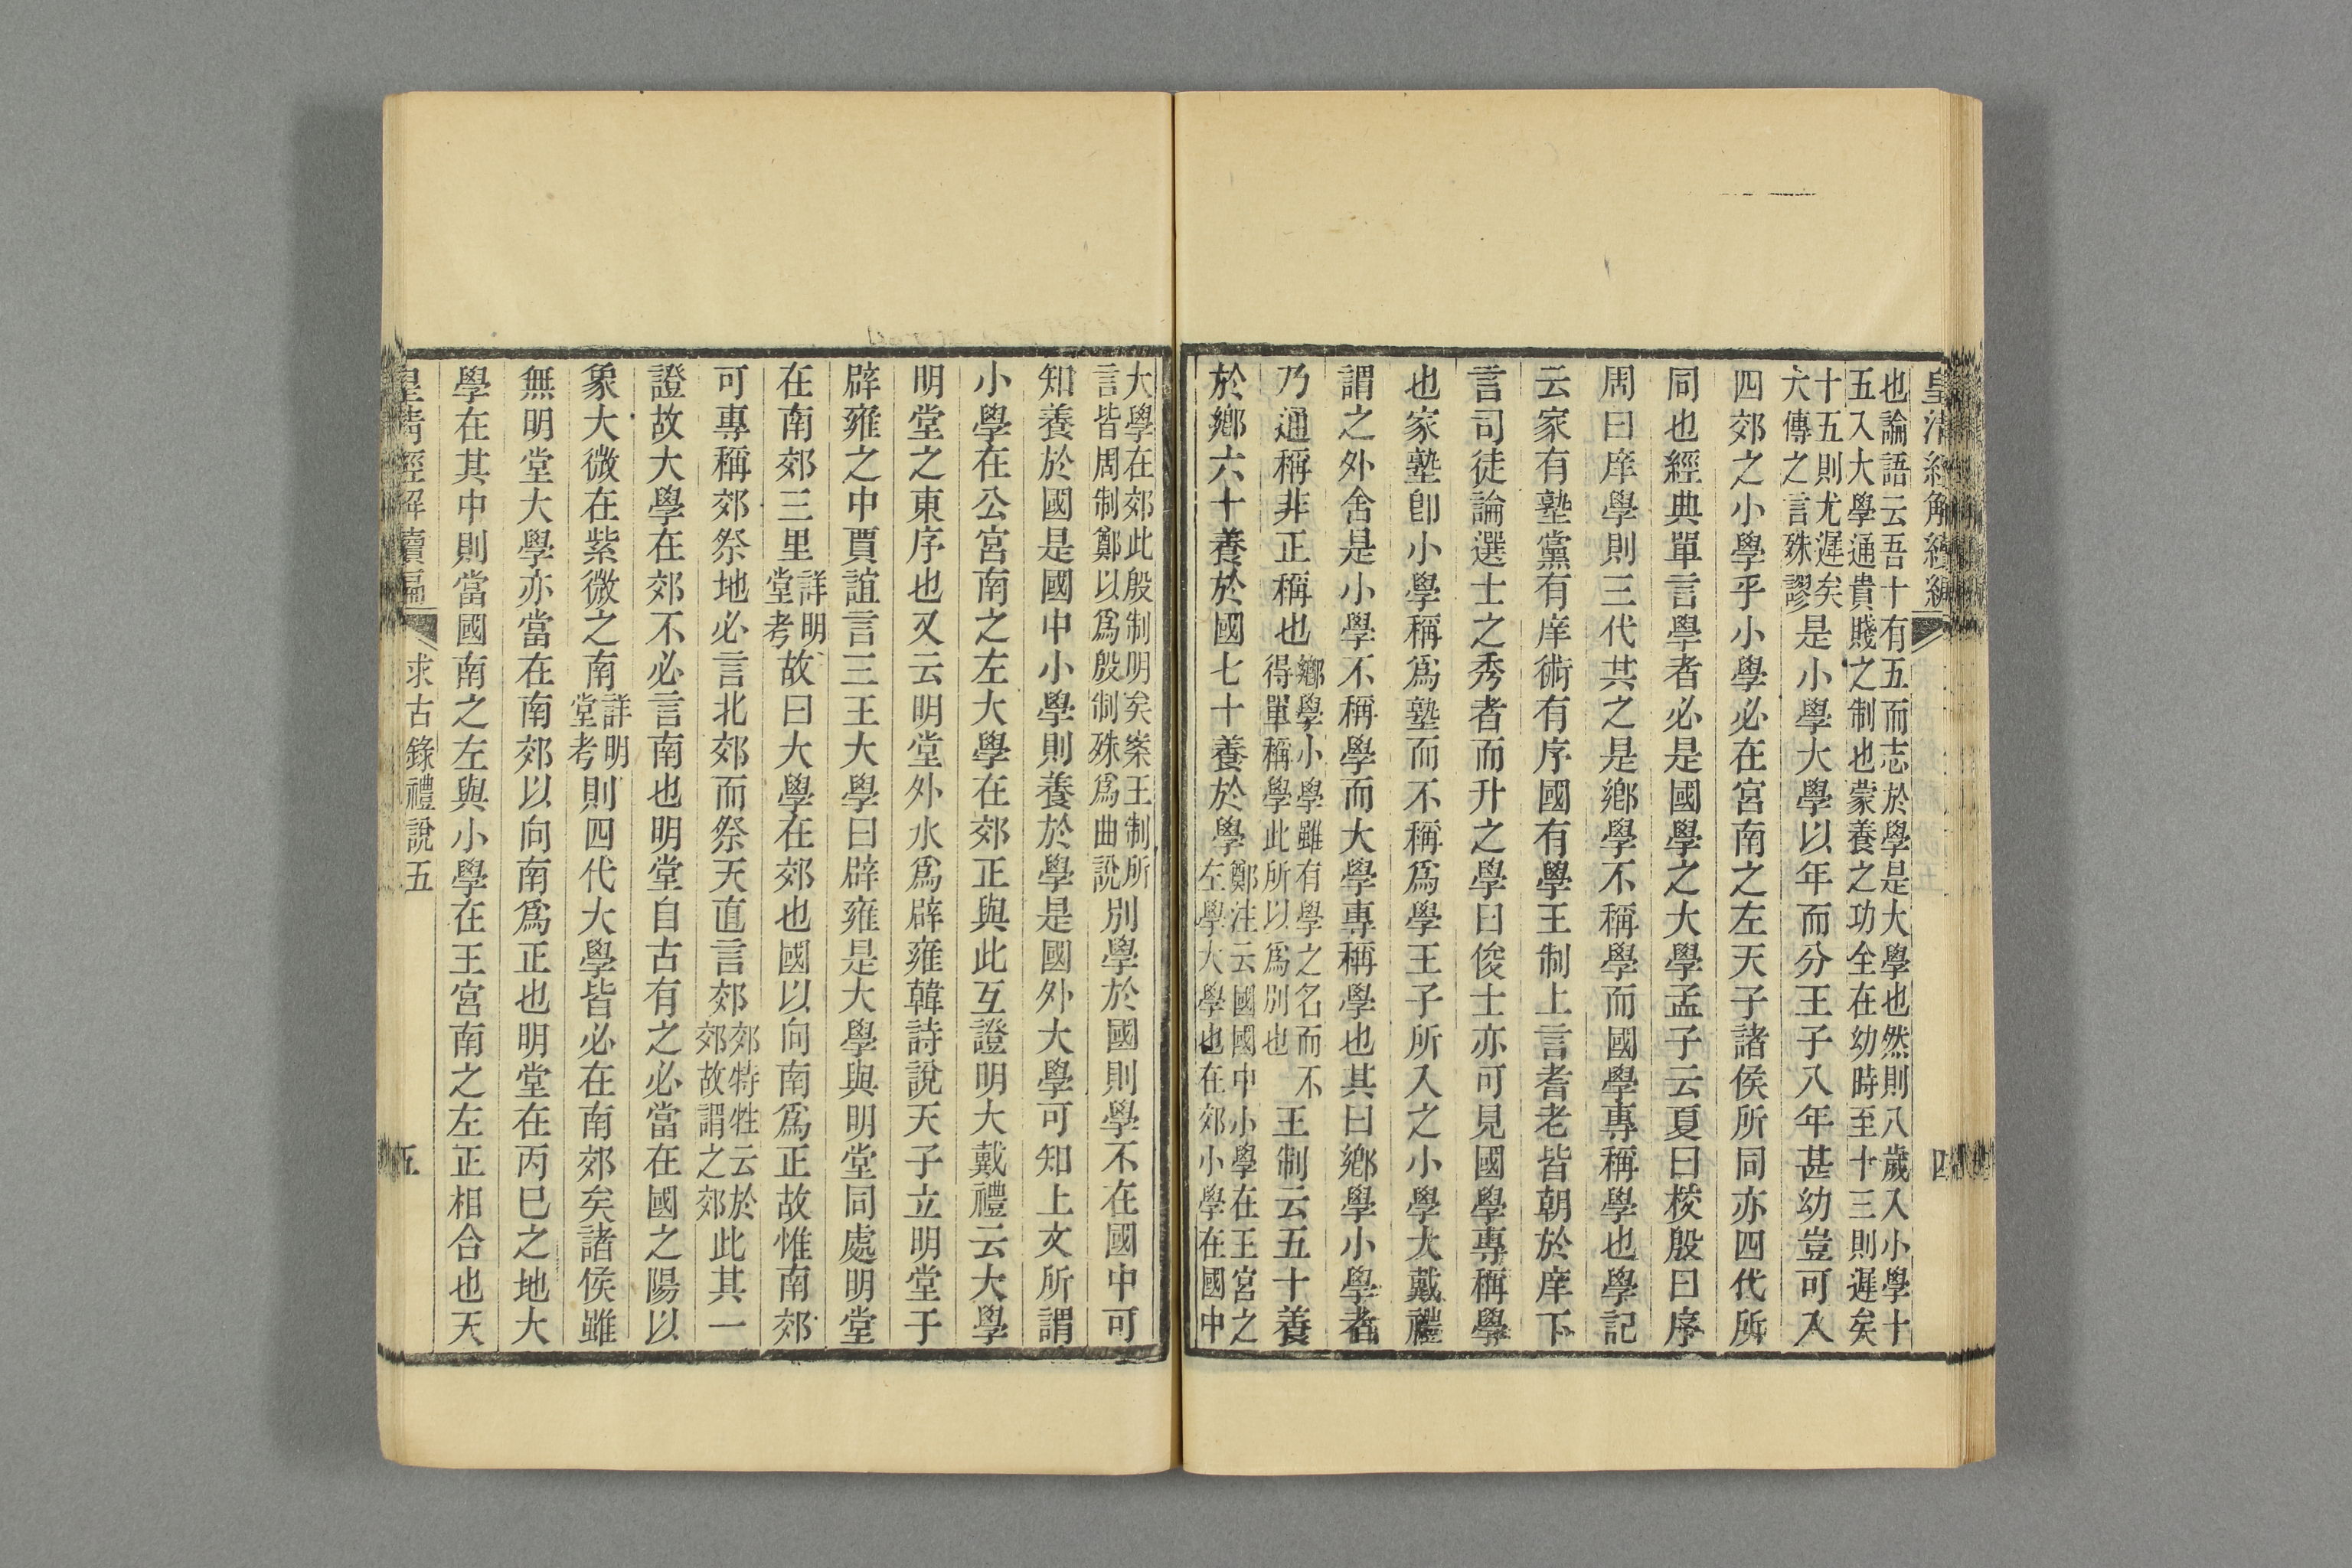 皇清經解續編
四
也論語云吾十有五而志於學是大學也然則八歲入小學十
五入大學通貴賤之制也蒙養之功全在幼時至十三則遲矣
十五則尤遲矣
大傳之言殊謬是小學大學以年而分王子八年甚幼豈可入
四郊之小學乎小學必在宮南之左天子諸侯所同亦四代所
同也經典單言學者必是國學之大學孟子云夏曰校殷曰序
周曰庠學則三代共之是鄉學不稱學而國學專稱學也學記
云家有塾黨有庠術有序國有學王制上言耆老皆朝於庠下
言司徒論選士之秀者而升之學曰俊士亦可見國學專稱學
也家塾卽小學稱爲塾而不稱爲學王子所入之小學大戴禮
謂之外舍是小學不稱學而大學專稱學也其曰鄉學小學者
乃通稱非正稱也鄉學小學雖有學之名而不
得單稱學此所以爲別也王制云五十養
於鄉六十養於國七十養於學鄭注云國國中小學在王宮之
左學大學也在郊小學在國中
大學在郊此殷制明矣案王制所
言皆周制鄭以爲殷制殊爲曲說別學於國則學不在國中可
知養於國是國中小學則養於學是國外大學可知上文所謂
小學在公宮南之左大學在郊正與此互證明大戴禮云大學
明堂之東序也又云明堂外水爲辟雍韓詩說天子立明堂于
辟雍之中賈誼言三王大學曰辟雍是大學與明堂同處明堂
在南郊三里詳明
堂考故曰大學在郊也國以向南爲正故惟南郊
可專稱郊祭地必言北郊而祭天直言郊郊特牲云於
郊故謂之郊此其一
證故大學在郊不必言南也明堂自古有之必當在國之陽以
象大微在紫微之南詳明
堂考則四代大學皆必在南郊矣諸侯雖
無明堂大學亦當在南郊以向南爲正也明堂在丙巳之地大
學在其中則當國南之左與小學在王宮南之左正相合也天
皇清經解續編
求古錄禮說五
五